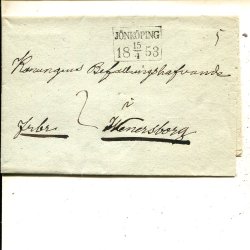 JÖNKÖPING
15
18 4 53
5
Konungens Befallningshafvande
i
frbr Wenersborg